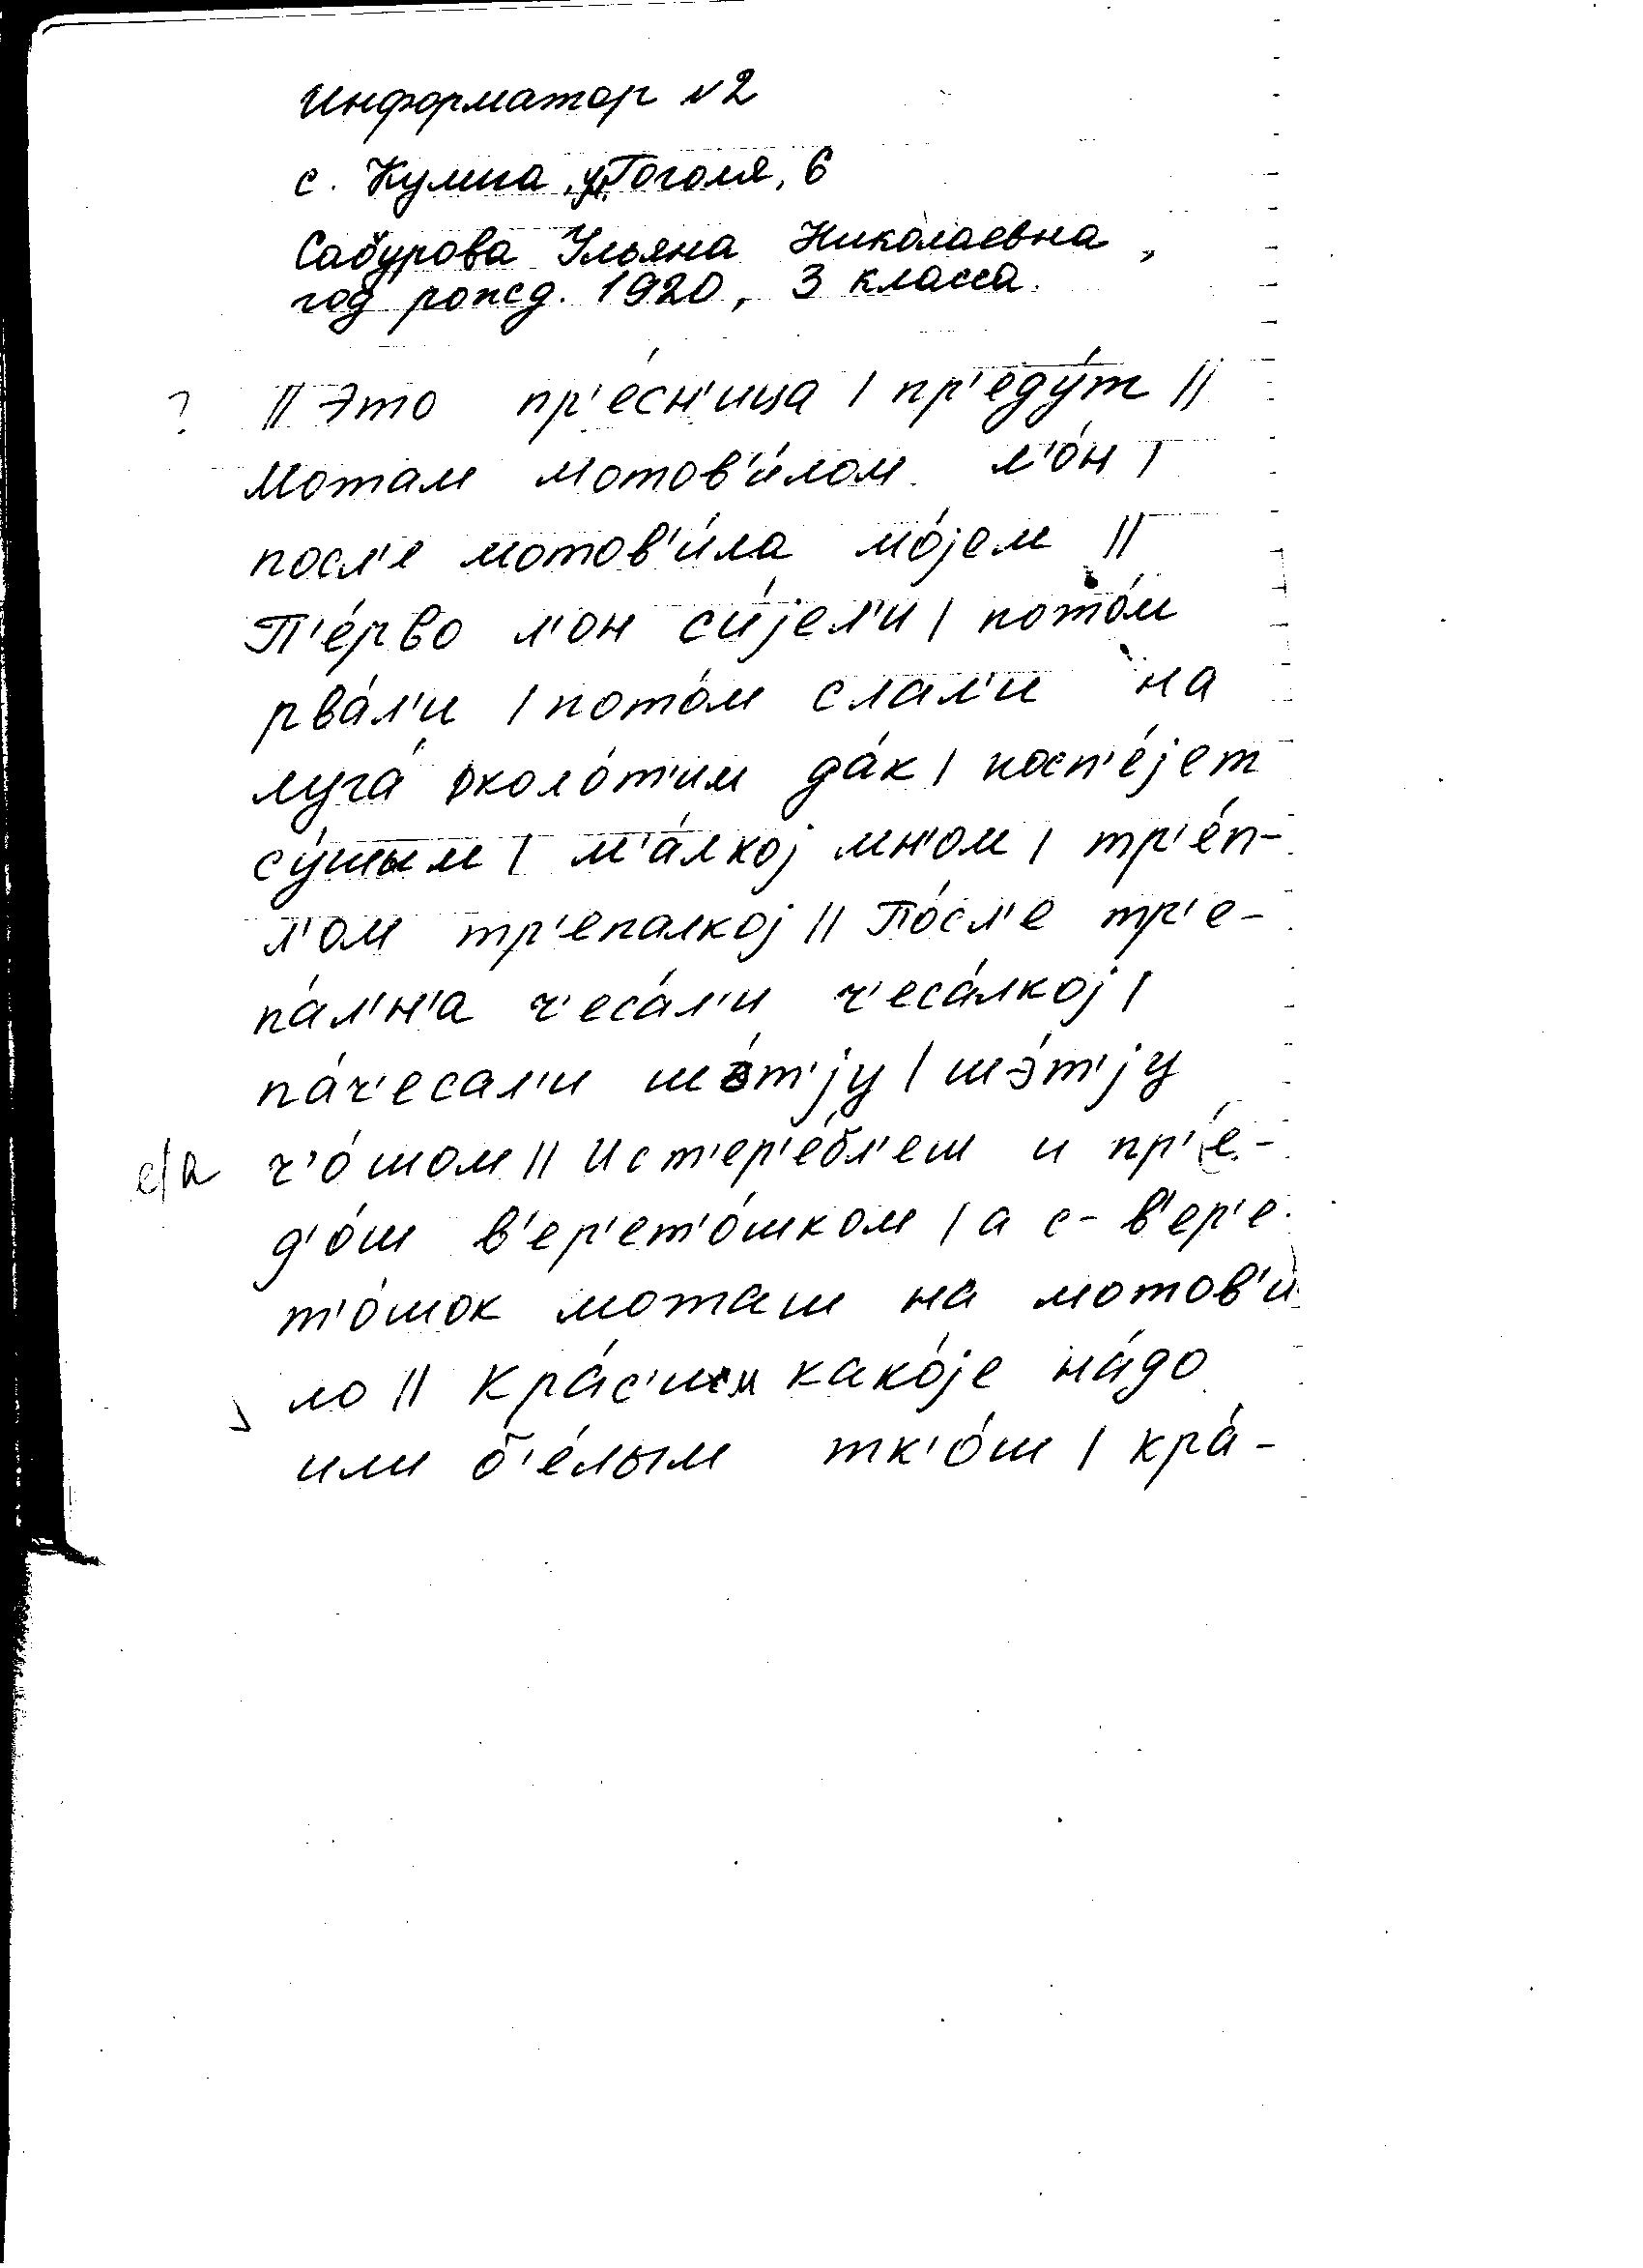 Информатор №2
с. Кулига, ул. Гоголя, 6
Сабурова Ульяна Николаевна,
год рожд. 1920, 3 класса.
? || Это пр'е́сн'ица | пр'еду́т ||
Мотам мотов'и́лом л'о́н |
посл'е мотов'и́ла мо́jем ||
П'е́рво л'он си́jел'и | пото́м
рва́л'и | пото́м слал'и на
луга́ около́т'им да́к | посп'е́jет
су́шым | м'а́лкоj мн'ом | тр'е́п-
л'ом тр'епалкоj || По́сл'е тр'е-
па́л'н'а ч'еса́л'и ч'еса́лкоj |
па́ч'есал'и шэ́т'jу | шэ́т'jу
е/а ч'о́шом || Ист'ер'е́бл'еш и пр'е-
д'о́ш в'ер'ет'о́шком | а с- в'ер'е
т'о́шок моташ на мотов'и
ло || Кра́с'им како́jе на́до
или б'е́лым тк'о́ш | кра́-